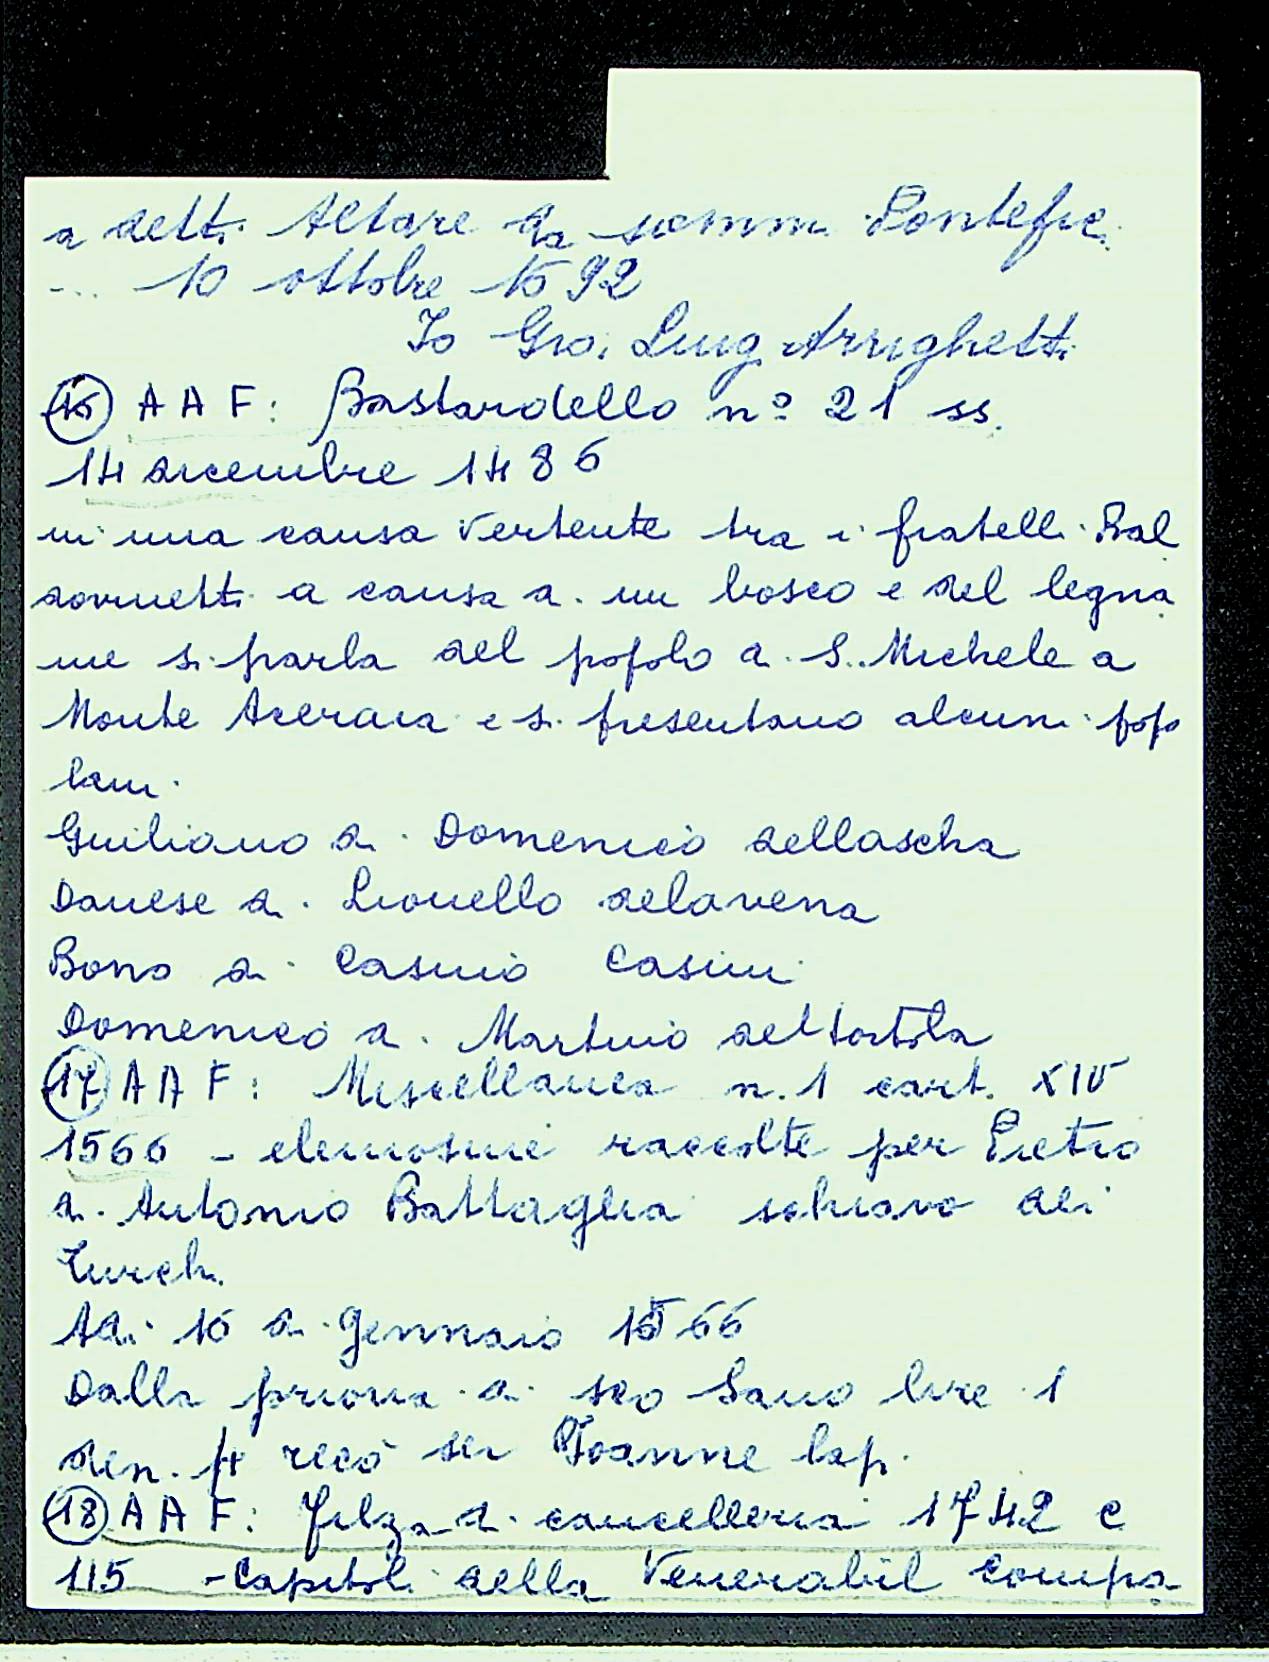 a detti Altare da sommi Pontefic.
... 10 ottobre 1592
Io Gio: Luigi Arrighetti
(16) A A F: Bastardello nº 21 ss.
14 dicembre 1486
in una causa vertente tra i fratelli Bal
dovinetti a causa di un bosco e del legna
me si parla del popolo di S. Michele a
Monte Aceraia e si presentano alcuni popo
lani.
Giuliano di Domenico dellascha
Danese di Lionello delavena
Bono di Casino Casini
Domenico di Martino del
(17) A A F: Miscellanea n. 1 cart. XIV
1566 - elemosine raccolte per Pietro
di Antonio Battaglia schiavo dei
Turchi.
Adi 16 di gennaio 1566
Dalla prioria di sco Sano lire 1
den. 4 recò ser Joanne lap.
(18) A A F: Filza di cancelleria 1742 c
115 - Capitoli della Venerabil Compa